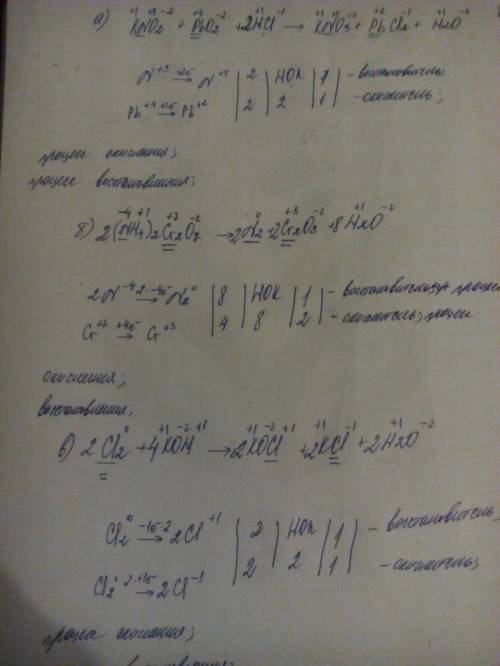 а) K⁺¹N⁺³O₂⁻² + Pb⁺⁴O₂⁻² + 2H⁺¹Cl⁻¹ → K⁺¹N⁺⁵O₃⁻² + Pb⁺²Cl₂⁻¹ + H₂⁺¹O⁻²
N⁺³ -2e→ N⁺⁵ | 2 | НОК | 1 | - восстановитель;
Pb⁺⁴ +2e→ Pb⁺² | 2 | 2 | 1 | - окислитель;
процесс окисления;
процесс восстановления;
б) 2(N⁻⁴H₄⁺¹)₂Cr₂⁺⁷O₇⁻² → 2N₂⁰ + 2Cr₂⁺³O₃⁻² + 8H₂⁺¹O⁻²
2N⁻⁴ 2·-4e→ N₂⁰ | 8 | НОК | 1 | - восстановитель, процесс
Cr⁺⁷ +4e→ Cr⁺³ | 4 | 8 | 2 | - окислитель, процесс
окисления;
восстановления;
в) 2Cl₂⁰ + 4K⁺¹O⁻²H⁺¹ → 2K⁺¹O⁻²Cl⁺¹ + 2K⁺¹Cl⁻¹ + 2H₂⁺¹O⁻²
Cl₂⁰ -1e·2→ 2Cl⁺¹ | 2 | НОК | 1 | - восстановитель
Cl₂⁰ 2·+1e→ 2Cl⁻¹ | 2 | 2 | 1 | - окислитель;
процесс окисления;